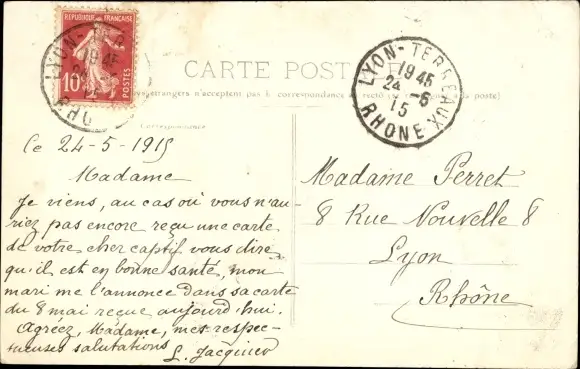 REPUBLIQUE FRANÇAISE
10c
POSTES
LYON-TER
19 45
24
RHO
CARTE POST
LYON-TERREAUX
19 45
24 -5
15
RHONE
étrangers n'acceptent pas la correspondance au recto
à la poste)
Correspondance
Le 24-5-1915
Madame
Je viens, au cas où vous n'au-
riez pas encore reçu une carte
de votre cher captif vous dire
qu'il est en bonne santé, mon
mari me l'annonce dans sa carte
du 8 mai reçue aujourd'hui.
Agréez, Madame, mes respec-
tueuses salutations
L. Jacquier
Madame Perret
8 Rue Nouvelle 8
Lyon
Rhône